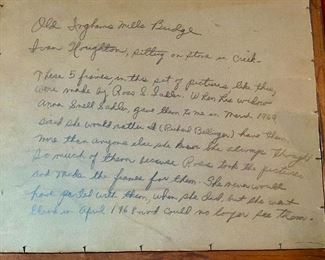 Old Inghams Mills Bridge
Ivan Houghton, sitting on stone in Crick.
These 5 frames, in the set of pictures like this,
were made by Ross E. When his widow
Anna Snell gave them to me in March 1969
said she would rather I (Richard Bellinger) have them
more than anyone else she knew. She always thought
so much of them because Ross took the pictures
and made the frames for them. She never would
have parted with them, when she did, but she went
blind in April 1968 and could no longer see them.